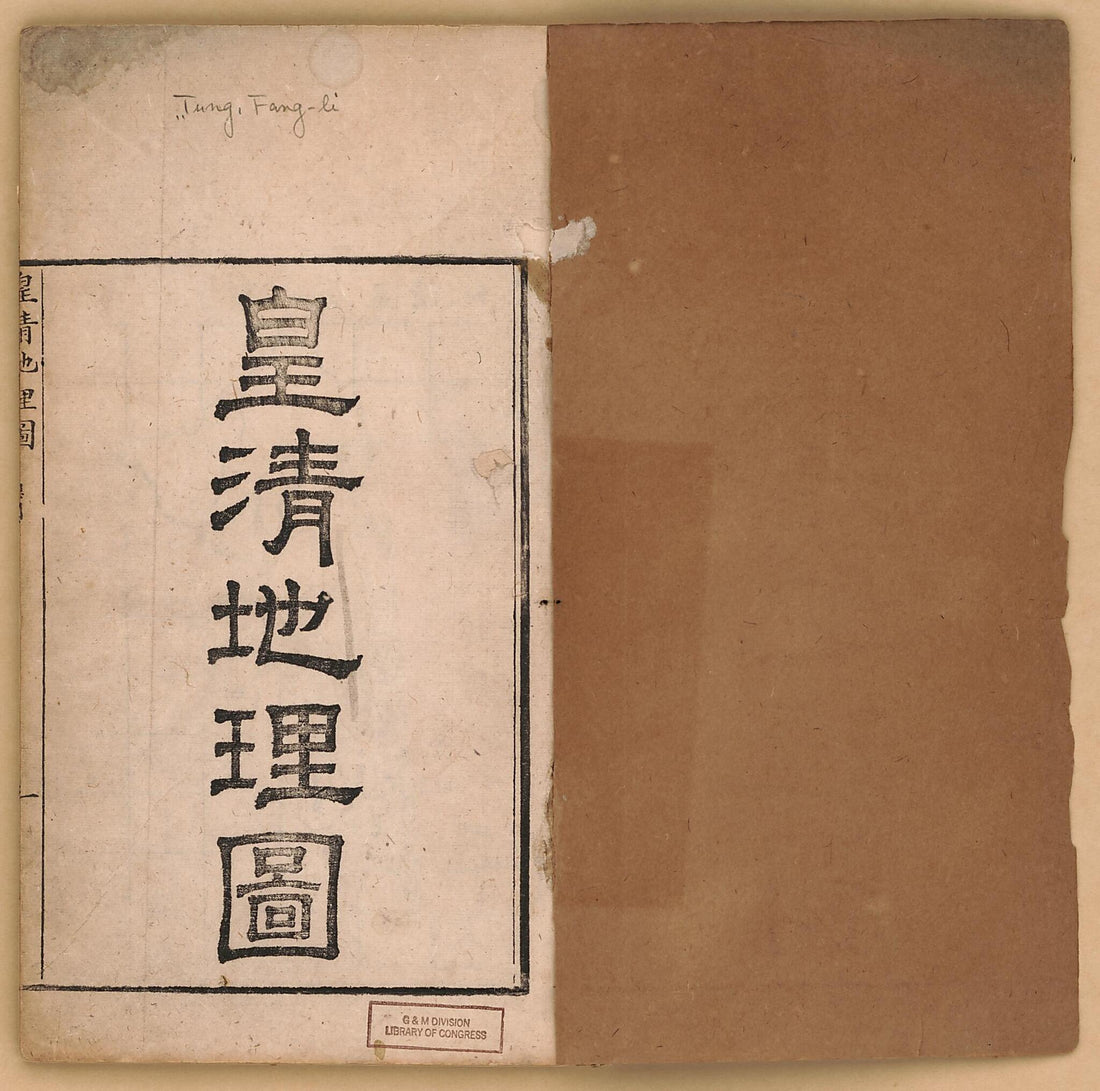 Tung, Fang-li
皇清地理圖
皇清地理圖
一
G & M DIVISION
LIBRARY OF CONGRESS